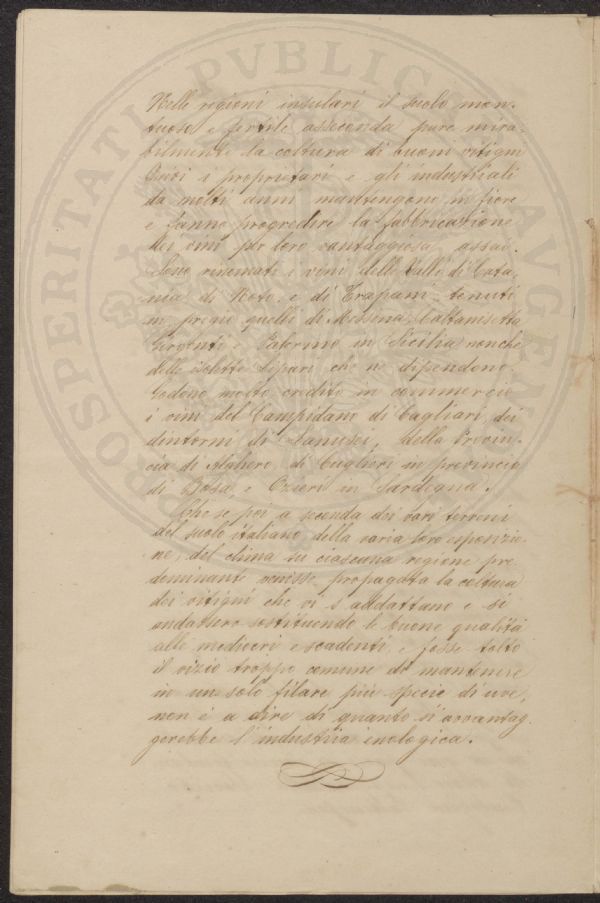 PROSPERITATI PVBLICAE AVGENDAE
Nelle regioni insulari il suolo mon-
tuoso e fertile asseconda pure mira-
bilmente la coltura di buoni vitigni
Quivi i proprietari e gli industriali
da molti anni mantengono in fiore
e fanno progredire la fabbricazione
dei vini per loro vantaggiosa assai.
Sono rinomati i vini delle Valli di Cata-
nia, di Noto, e di Trapani; tenuti
in pregio quelli di Messina, Caltanisetta
Girgenti e Palermo in Sicilia nonchè
delle isolette Lipari che ne dipendono.
Godono molto credito in commercio
i vini del Campidano di Cagliari, dei
dintorni di Lanusei, della Provin-
cia di Alghero, di Cuglieri in provincia
di Bosa, e Ozieri in Sardegna.
Che se poi a seconda dei vari terreni
del suolo italiano, della varia loro esposizio-
ne, del clima su ciascuna regione pre-
dominante venisse propagata la coltura
dei vitigni che vi s'addattano e si
andassero sostituendo le buone qualità
alle mediocri e scadenti, e fosse tolto
il vizio troppo comune di mantenere
in un solo filare più specie di uve,
non è a dire di quanto s'avvantag-
gerebbe l'industria enologica.